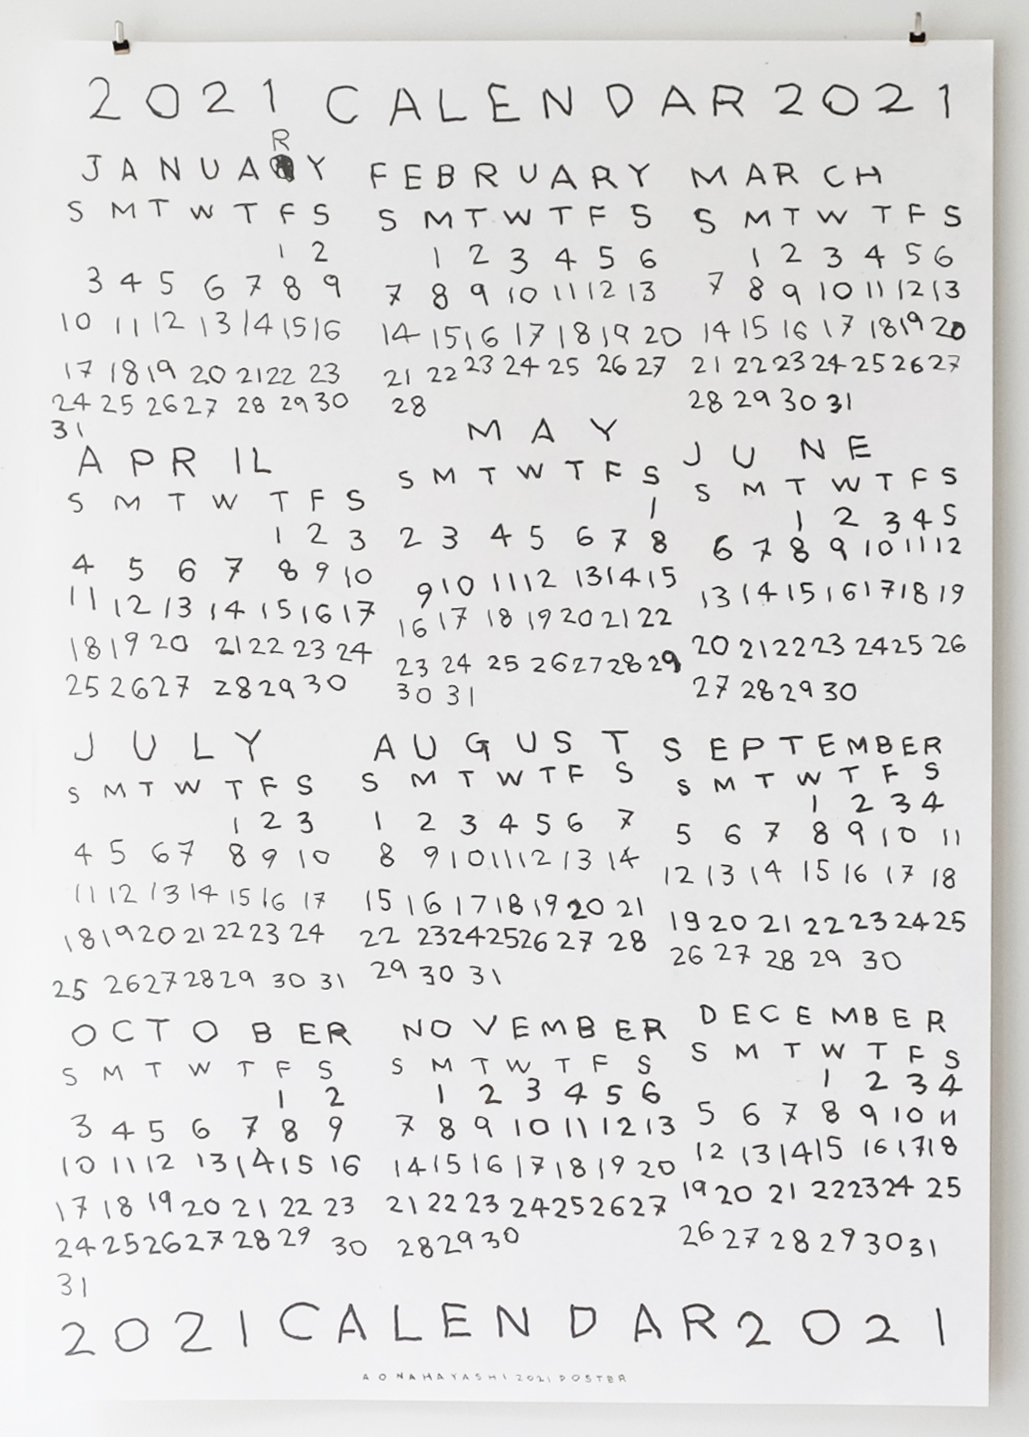 2021 CALENDAR 2021
JANUARY
S M T W T F S
1 2
3 4 5 6 7 8 9
10 11 12 13 14 15 16
17 18 19 20 21 22 23
24 25 26 27 28 29 30
31
FEBRUARY
S M T W T F S
1 2 3 4 5 6
7 8 9 10 11 12 13
14 15 16 17 18 19 20
21 22 23 24 25 26 27
28
MARCH
S M T W T F S
1 2 3 4 5 6
7 8 9 10 11 12 13
14 15 16 17 18 19 20
21 22 23 24 25 26 27
28 29 30 31
APRIL
S M T W T F S
1 2 3
4 5 6 7 8 9 10
11 12 13 14 15 16 17
18 19 20 21 22 23 24
25 26 27 28 29 30
MAY
S M T W T F S
1
2 3 4 5 6 7 8
9 10 11 12 13 14 15
16 17 18 19 20 21 22
23 24 25 26 27 28 29
30 31
JUNE
S M T W T F S
1 2 3 4 5
6 7 8 9 10 11 12
13 14 15 16 17 18 19
20 21 22 23 24 25 26
27 28 29 30
JULY
S M T W T F S
1 2 3
4 5 6 7 8 9 10
11 12 13 14 15 16 17
18 19 20 21 22 23 24
25 26 27 28 29 30 31
AUGUST
S M T W T F S
1 2 3 4 5 6 7
8 9 10 11 12 13 14
15 16 17 18 19 20 21
22 23 24 25 26 27 28
29 30 31
SEPTEMBER
S M T W T F S
1 2 3 4
5 6 7 8 9 10 11
12 13 14 15 16 17 18
19 20 21 22 23 24 25
26 27 28 29 30
OCTOBER
S M T W T F S
1 2
3 4 5 6 7 8 9
10 11 12 13 14 15 16
17 18 19 20 21 22 23
24 25 26 27 28 29 30
31
NOVEMBER
S M T W T F S
1 2 3 4 5 6
7 8 9 10 11 12 13
14 15 16 17 18 19 20
21 22 23 24 25 26 27
28 29 30
DECEMBER
S M T W T F S
1 2 3 4
5 6 7 8 9 10 11
12 13 14 15 16 17 18
19 20 21 22 23 24 25
26 27 28 29 30 31
2021 CALENDAR 2021
AONAHAYASHI 2021 POSTER